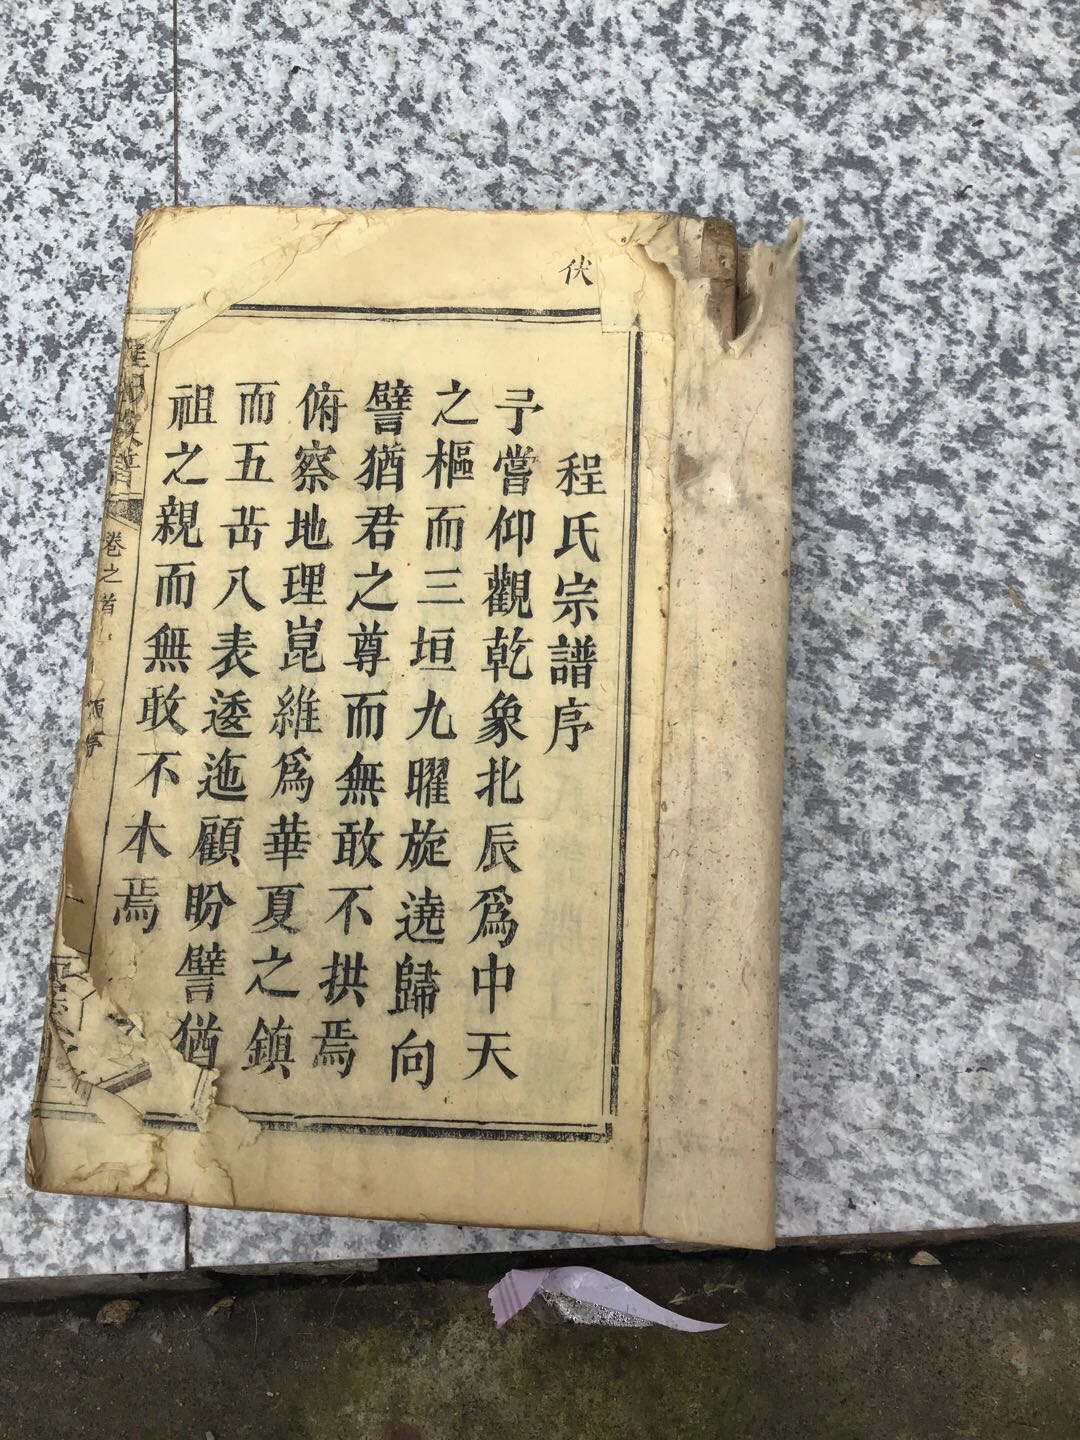 伏
程氏宗譜序
予嘗仰觀乾象北辰爲中天
之樞而三垣九曜旋遶歸向
譬猶君之尊而無敢不拱焉
俯察地理崑維爲華夏之鎮
而五岳八表逶迤顧盼譬猶
祖之親而無敢不本焉
卷之首